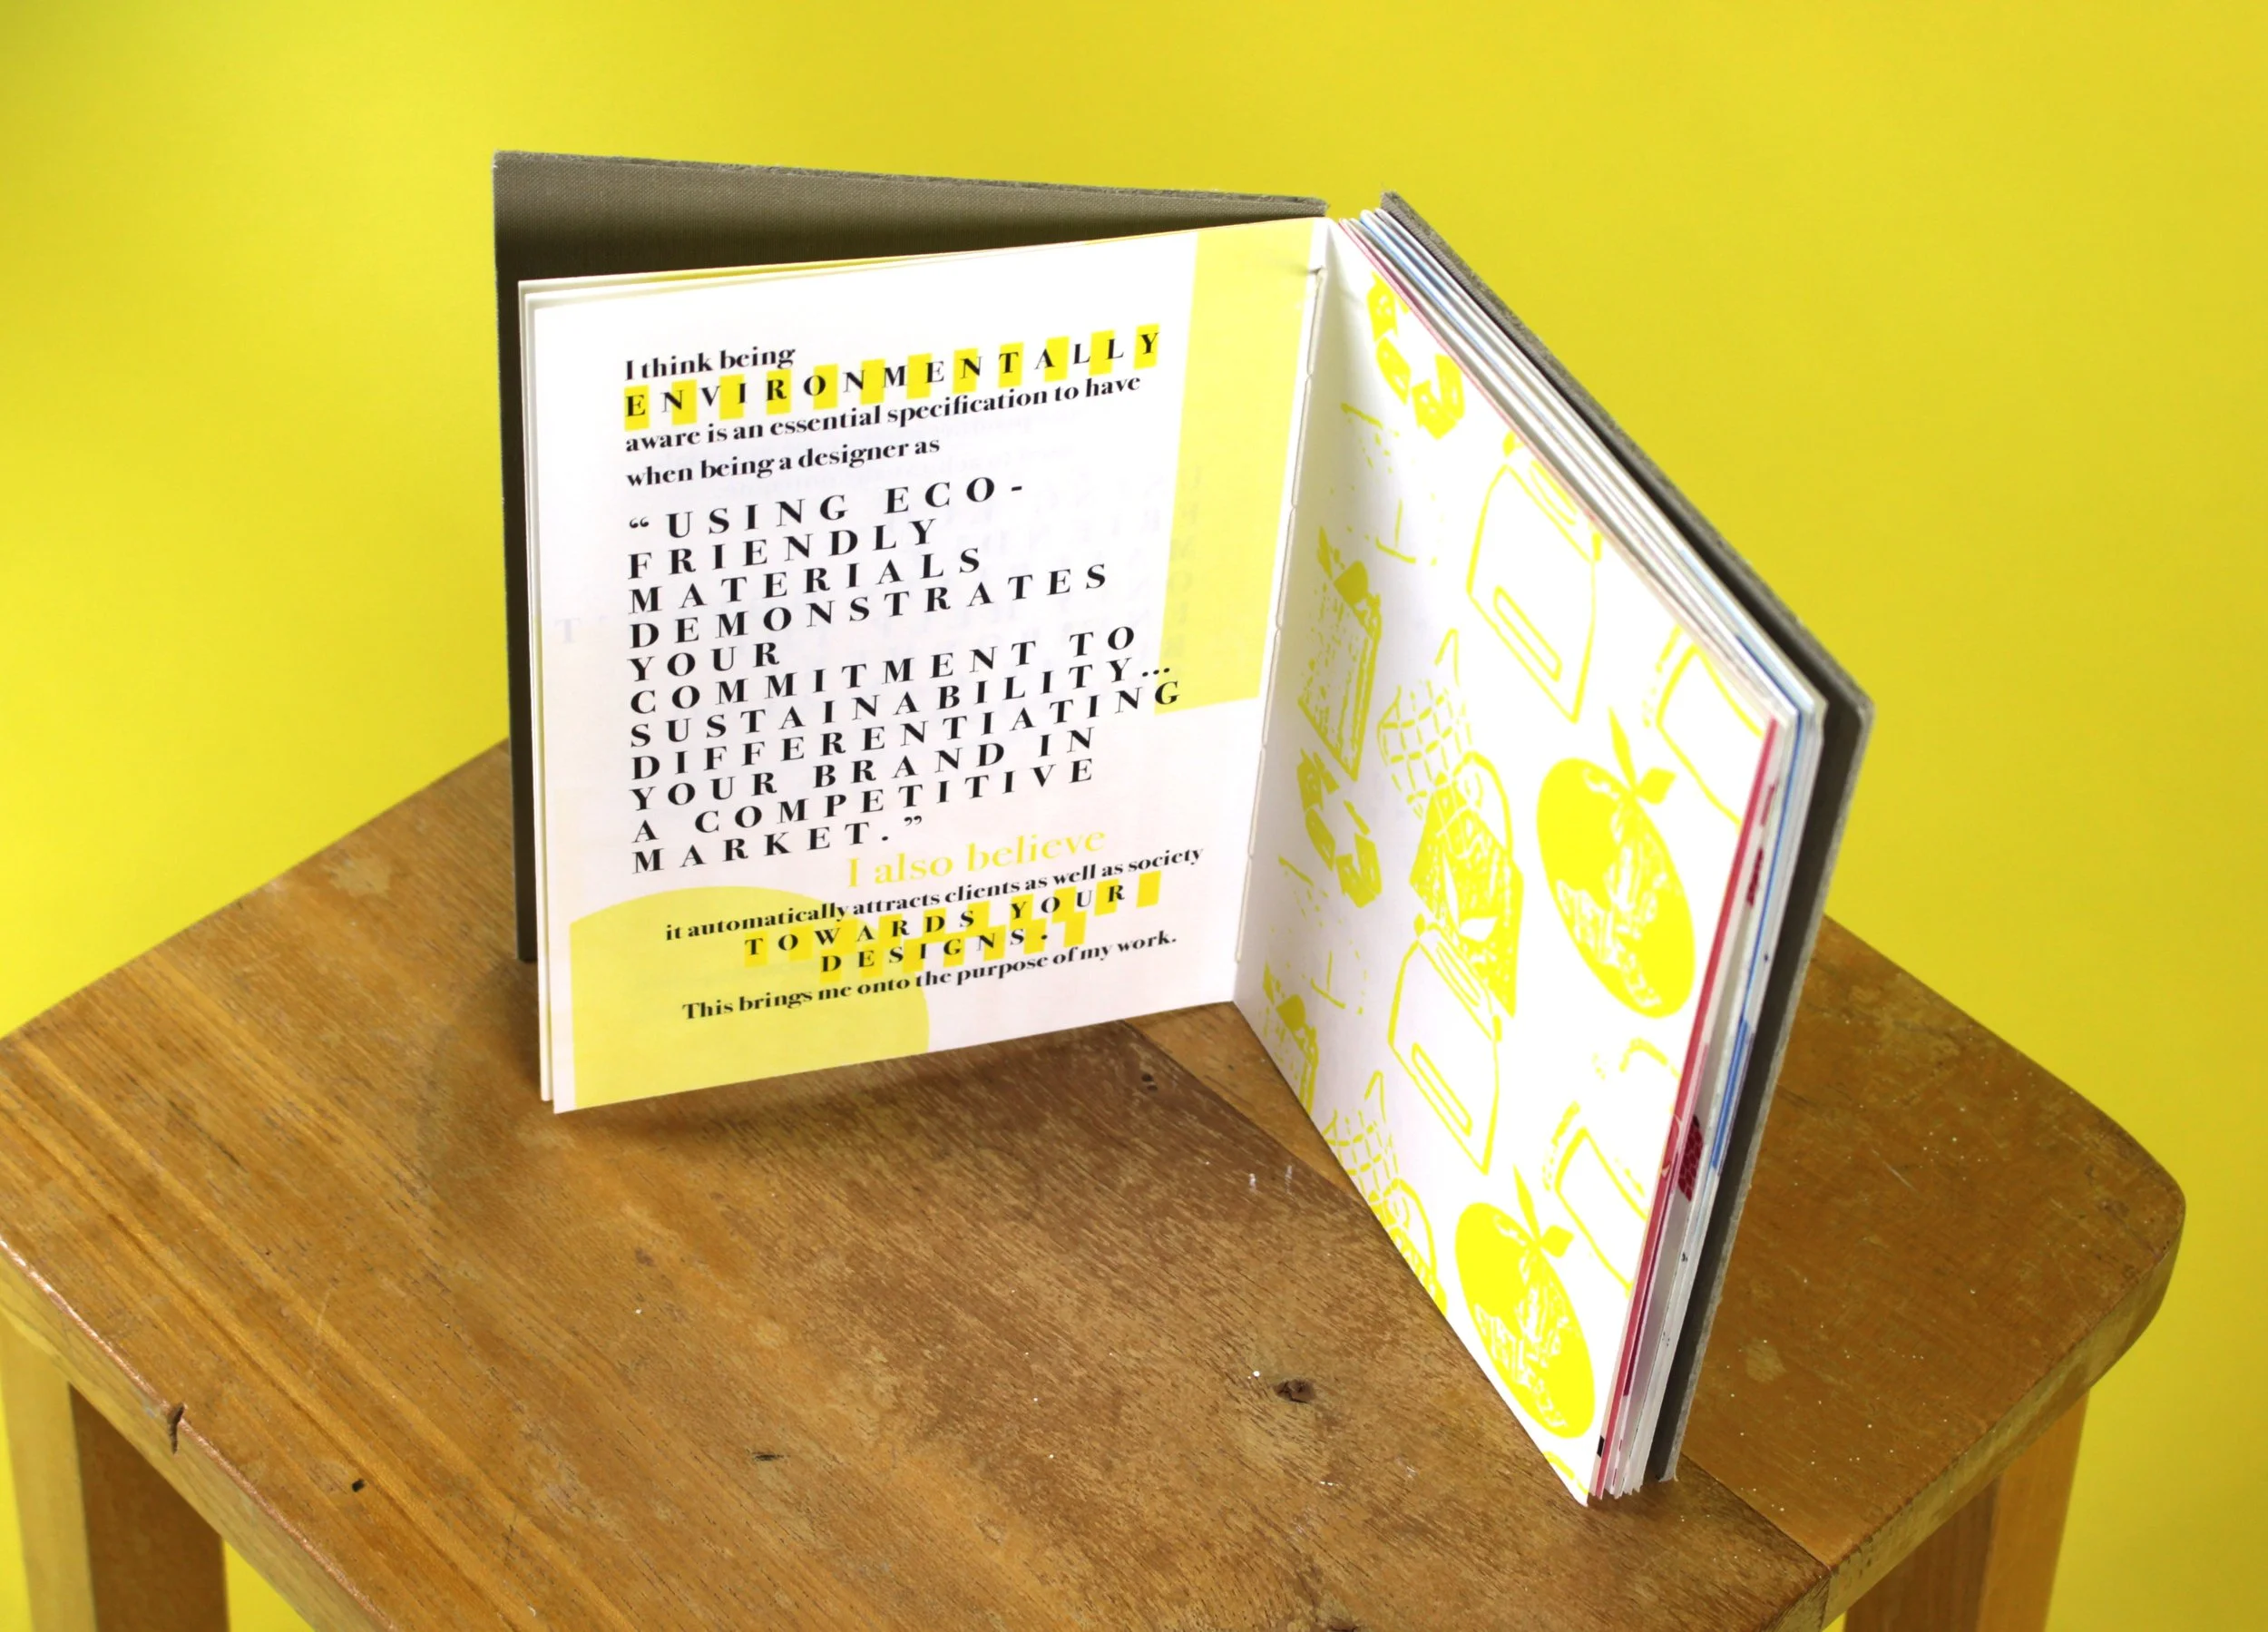 I think being
ENVIRONMENTALLY
aware is an essential specification to have
when being a designer as
“USING ECO-
FRIENDLY
MATERIALS
DEMONSTRATES
YOUR
COMMITMENT TO
SUSTAINABILITY...
DIFFERENTIATING
YOUR BRAND IN
A COMPETITIVE
MARKET.”
I also believe
it automatically attracts clients as well as society
TOWARDS YOUR
DESIGNS.
This brings me onto the purpose of my work.